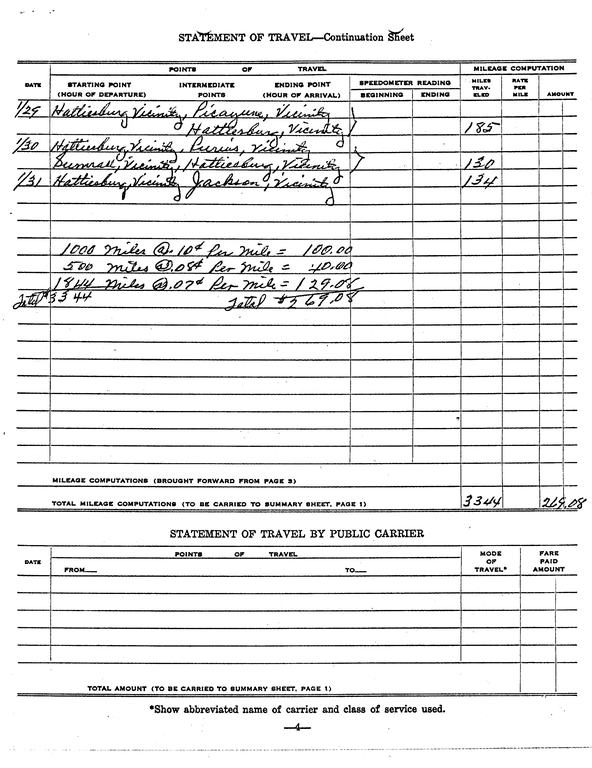 STATEMENT OF TRAVEL—Continuation Sheet
POINTS OF TRAVEL MILEAGE COMPUTATION
DATE STARTING POINT INTERMEDIATE ENDING POINT SPEEDOMETER READING MILES TRAV- ELED RATE PER MILE AMOUNT
(HOUR OF DEPARTURE) POINTS (HOUR OF ARRIVAL) BEGINNING ENDING
1/29 Hattiesburg Vicinity, Picayune, Vicinity
Hattiesburg, Vicinity 185
1/30 Hattiesburg, Vicinity, Purvis, Vicinity
Sumrall, Vicinity, Hattiesburg, Vicinity 130
1/31 Hattiesburg, Vicinity Jackson, Vicinity 134
1000 Miles @ .10¢ Per Mile = 100.00
500 Miles @ .08¢ Per Mile = 40.00
1844 Miles @ .07¢ Per Mile = 129.08
Total 3344 Total $269.08
MILEAGE COMPUTATIONS (BROUGHT FORWARD FROM PAGE 3)
TOTAL MILEAGE COMPUTATIONS (TO BE CARRIED TO SUMMARY SHEET, PAGE 1) 3344 269.08
STATEMENT OF TRAVEL BY PUBLIC CARRIER
DATE POINTS OF TRAVEL MODE OF TRAVEL* FARE PAID AMOUNT
FROM— TO—
TOTAL AMOUNT (TO BE CARRIED TO SUMMARY SHEET, PAGE 1)
*Show abbreviated name of carrier and class of service used.
—4—